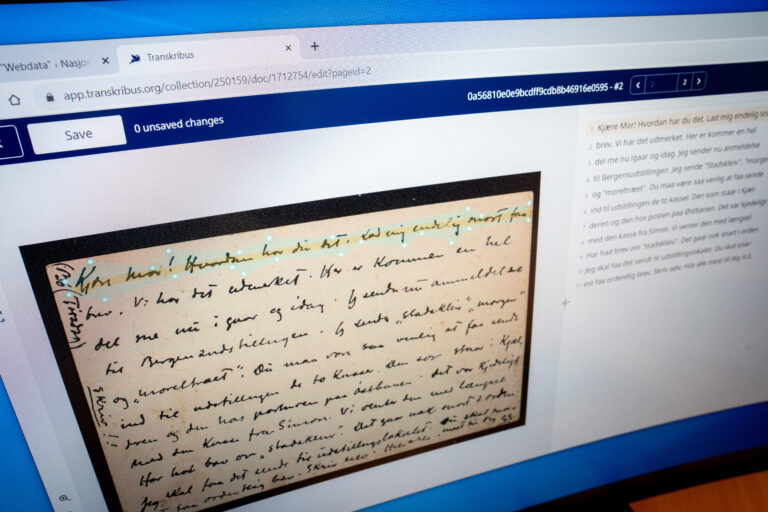 "Webdata" ‹ Nasjor
Transkribus
app.transkribus.org/collection/250159/doc/1712754/edit?pageid=2
Save
0 unsaved changes
0a56810e0e9bcdff9cdb8b46916e0595 - #2
2
2
(1/30 (Tirsdag)
Skriv!!
Kjære Mor! Hvordan har du det. Lad mig endelig snart faa
brev. Vi har det udmerket. Her er kommen en hel
del me nu igaar og idag. Jeg sender nu anmeldelse
til Bergensudstillingen. Jeg sende „Stadskleiv", „morgen"
og „moreltræet". Du maa være saa venlig at faa sendt
ind til udstillingen de to Kasser. Den som staar i Kjæl-
deren og den hos portneren paa Østbanen. Det var kjedeligt
med den Kasse fra Simon. Vi venter den med længsel
Har had brev om "stadskleiv". Det gaar nok snart i orden
Jeg skal faa det sendt til udstillingslokalet. Du skal snar-
est faa ordentlig brev. Skriv selv. Hils alle mest til dig
1 Kjære Mor! Hvordan har du det. Lad mig endelig sna
2 brev. Vi har det udmerket. Her er kommer en hel
3 del me nu igaar og idag. Jeg sender nu anmeldelse
4 til Bergensudstillingen. Jeg sende "Stadskleiv", "morge
5 og "moreltræet". Du maa være saa venlig at faa sende
6 ind til udstillingen de to kasser. Den som staar i Kjæl-
7 deren og den hos posten paa Østbanen. Det var kjedeligt
8 med den kasse fra Simon. Vi venter den med længsel
9 Har had brev om "stadskleiv". Det gaar nok snart i orden
10 Jeg skal faa det sendt til udstillingslokalet. Du skal snar-
11 est faa ordentlig brev. Skriv selv. hils alle mest til dig H.E.